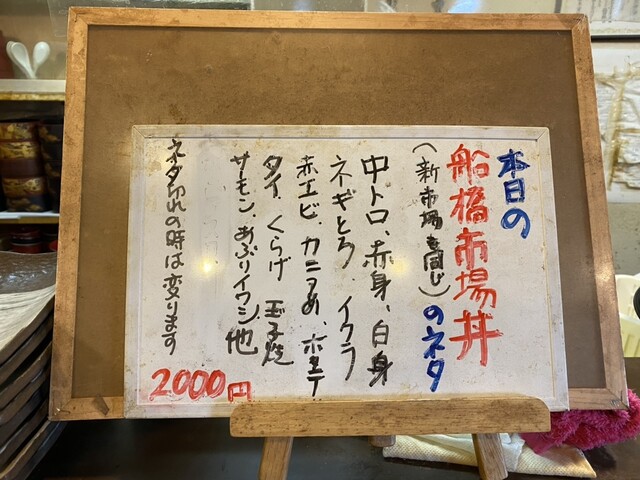 本日の
船橋市場丼
(新市場も同じ)のネタ
中トロ、赤身、白身
ネギとろ イクラ
赤エビ、カニつめ、ホタテ
タイ、くらげ 玉子焼
サーモン、あぶりイワシ、他
ネタ切れの時は変ります
2000円